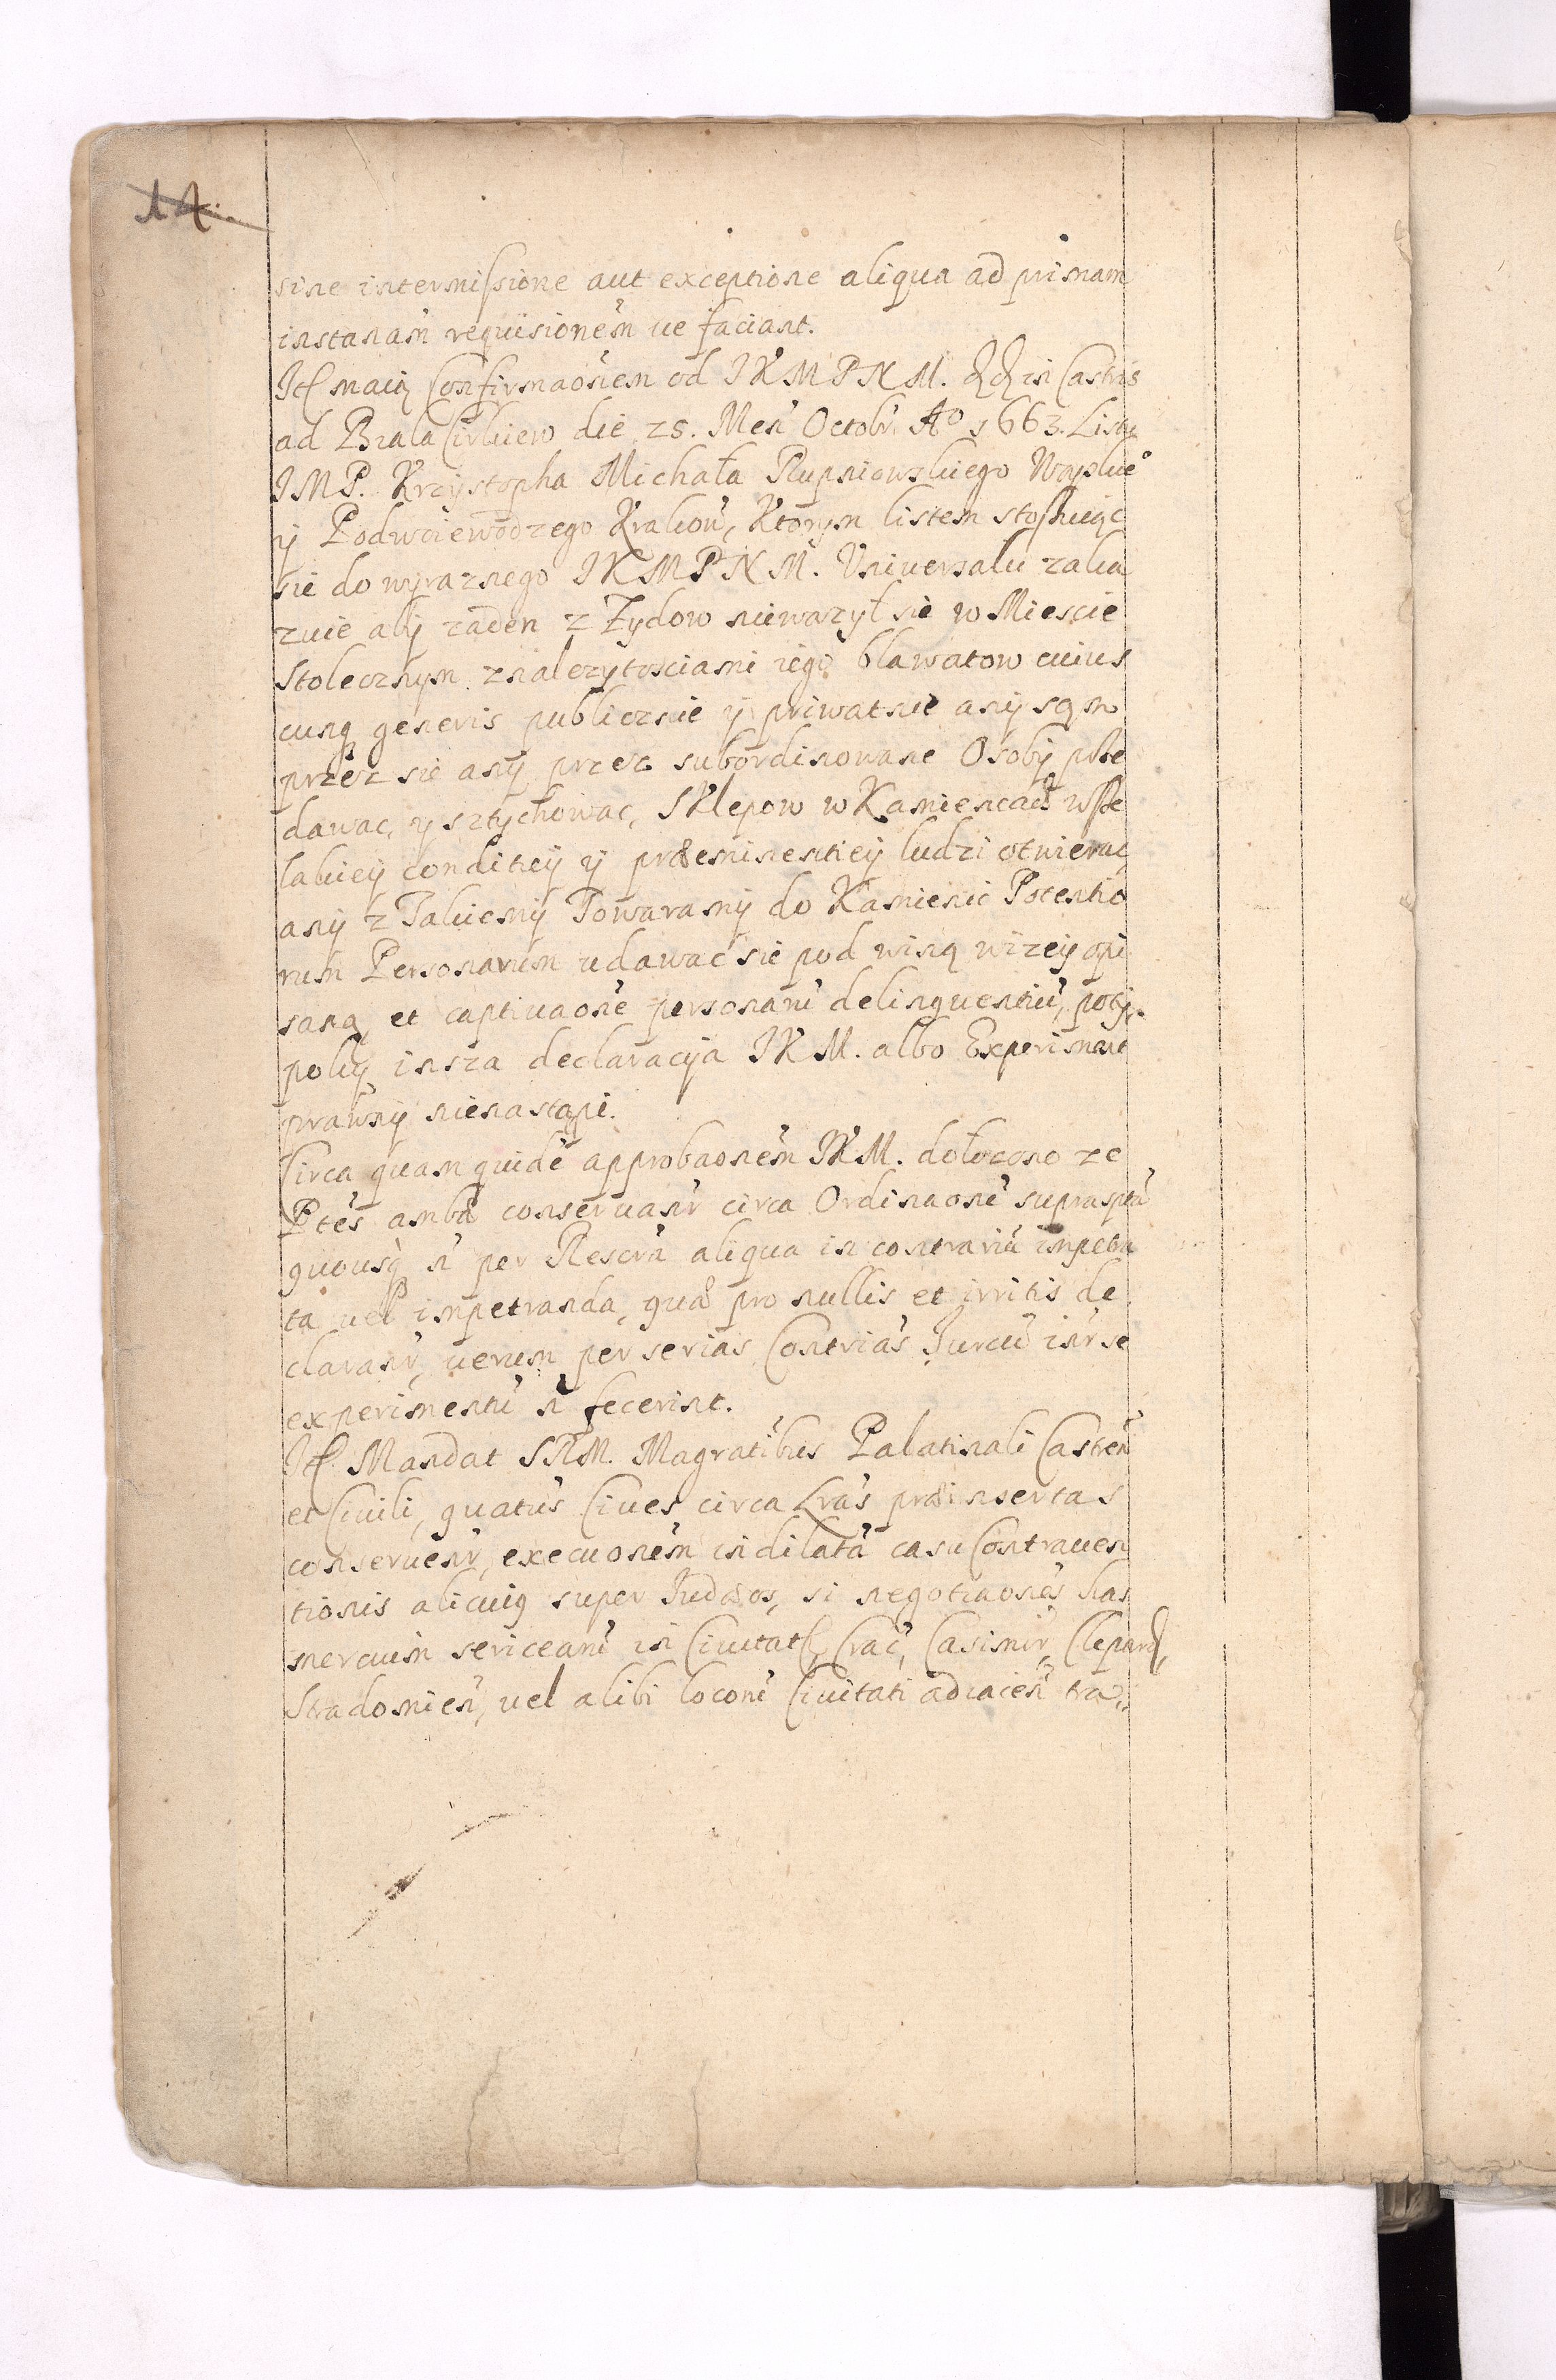 14.
sine intermissione aut exceptione aliqua ad primam
instanam̃ requisionem̃ ve faciant.
It maią Confirmaõnem od JKMPNM. in Castris
ad Biala Cirkiew die 25. Men̄ Octobr̃ Aº 1663. Listu
JMP. Krzysztopha Michała Rupniowskiego
y Podwoiewodzego Krakow̃, Ktorym listem stosuiąc
sie do wyraznego JKMPNM. Uniwersału zaka
zuie aby zaden z Zydow niewazył sie w Miescie
Stolecznym z nalezytosciami iego bławatow cuius
cunq generis publicznie y priwatnie any sąm
przez sie any przez subordinowane Osoby prze
dawac, y sztychowac, Sklepow w Kamienicach wsze
lakiey conditiey y præeminentiey ludzi otwierac
any z Takiemy Towaramy do Kamienic Potentio
rum Personarum udawac sie pod winą wizey opi
saną et captivaone personarũ delinquentiũ, poty
poky insza declaracya JKM. albo Experiment
prawny nienastąpi.
Circa quam quidẽ approbaonem̃ JKM. dołozono ze
Ptes̃ ambæ conservanr̃ circa Ordinaonẽ suprasptã
quousq̃ ñ per Rescrã aliqua in contrariũ impetra
ta vel impetranda, quæ pro nullis et irritis de
claranr̃, verum per serias Contrias̃ Jurcũ inr̃ se
experimentũ ñ fecerint.
It Mandat SRM. Magratibus̃ Palatinali Casten̄
et Civili, quatus̃ Cives circa Lras̃ præinsertas
conservenr̃, execuonem̃ indilatã casu Contraven
tionis alicuiq super Judæos, si negotiaones̃ has
mercium sericearũ in Civitat Crac̃, Casimir̃, Clepard,
Stradomien̄, vel alibi locorũ Civitati adiacen̄ tra